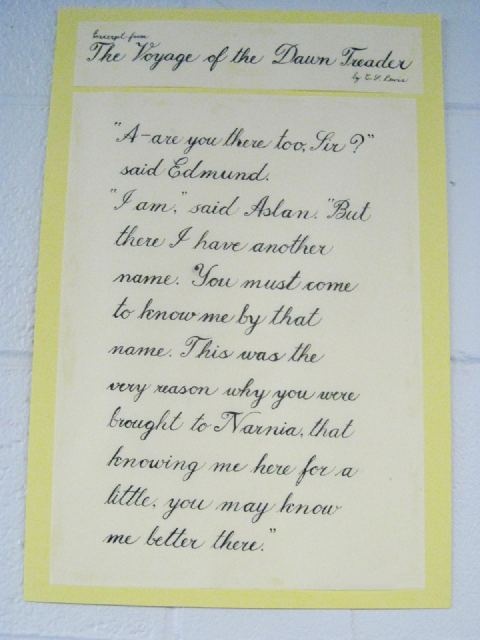 Excerpt from
The Voyage of the Dawn Treader
by C.S. Lewis
"A-are you there too, Sir?"
said Edmund.
"I am," said Aslan. "But
there I have another
name. You must come
to know me by that
name. This was the
very reason why you were
brought to Narnia, that
knowing me here for a
little, you may know
me better there."